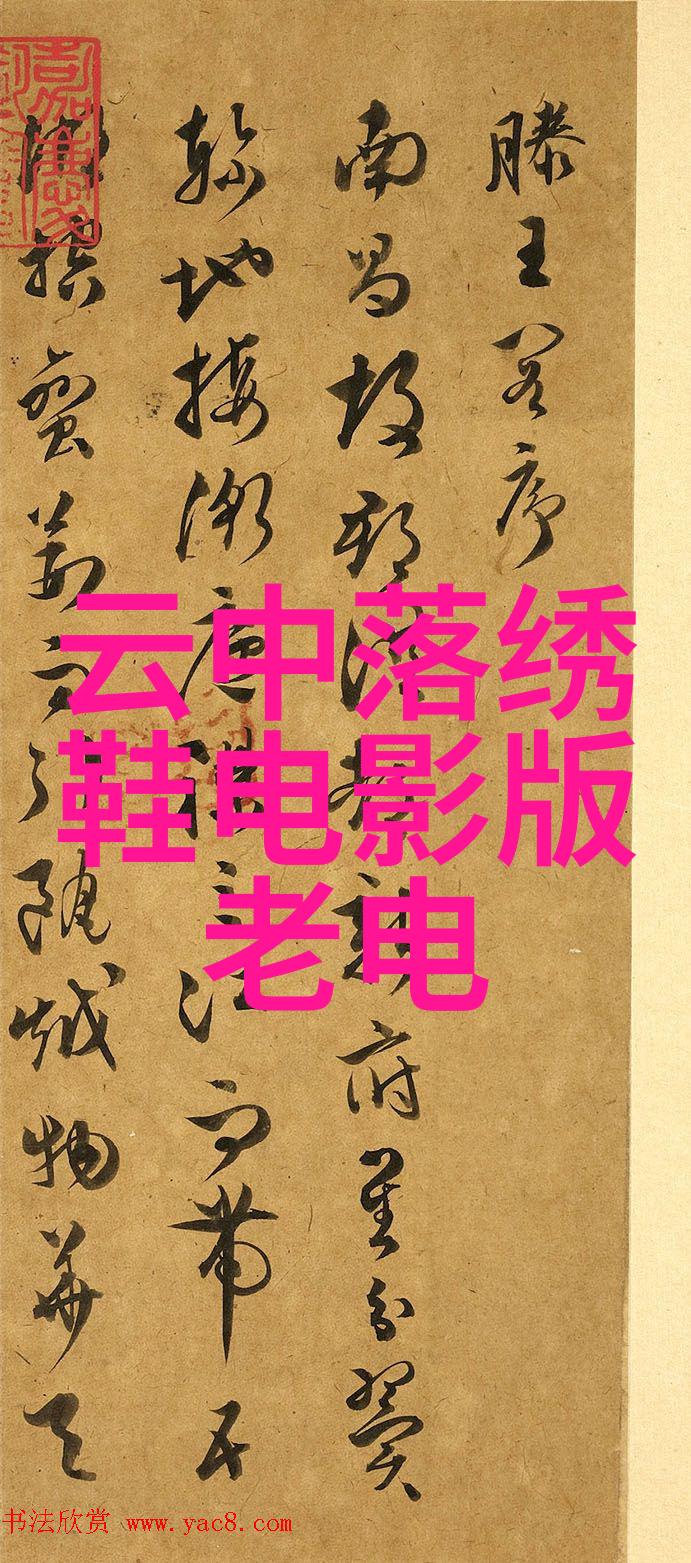 滕王閣序
南昌故郡洪都新府星分翼
軫地接衡廬襟三江而帶五
湖控蠻荊而引甌越物華天
云中落绣
鞋电影版
老电
书法欣赏 www.yac8.com